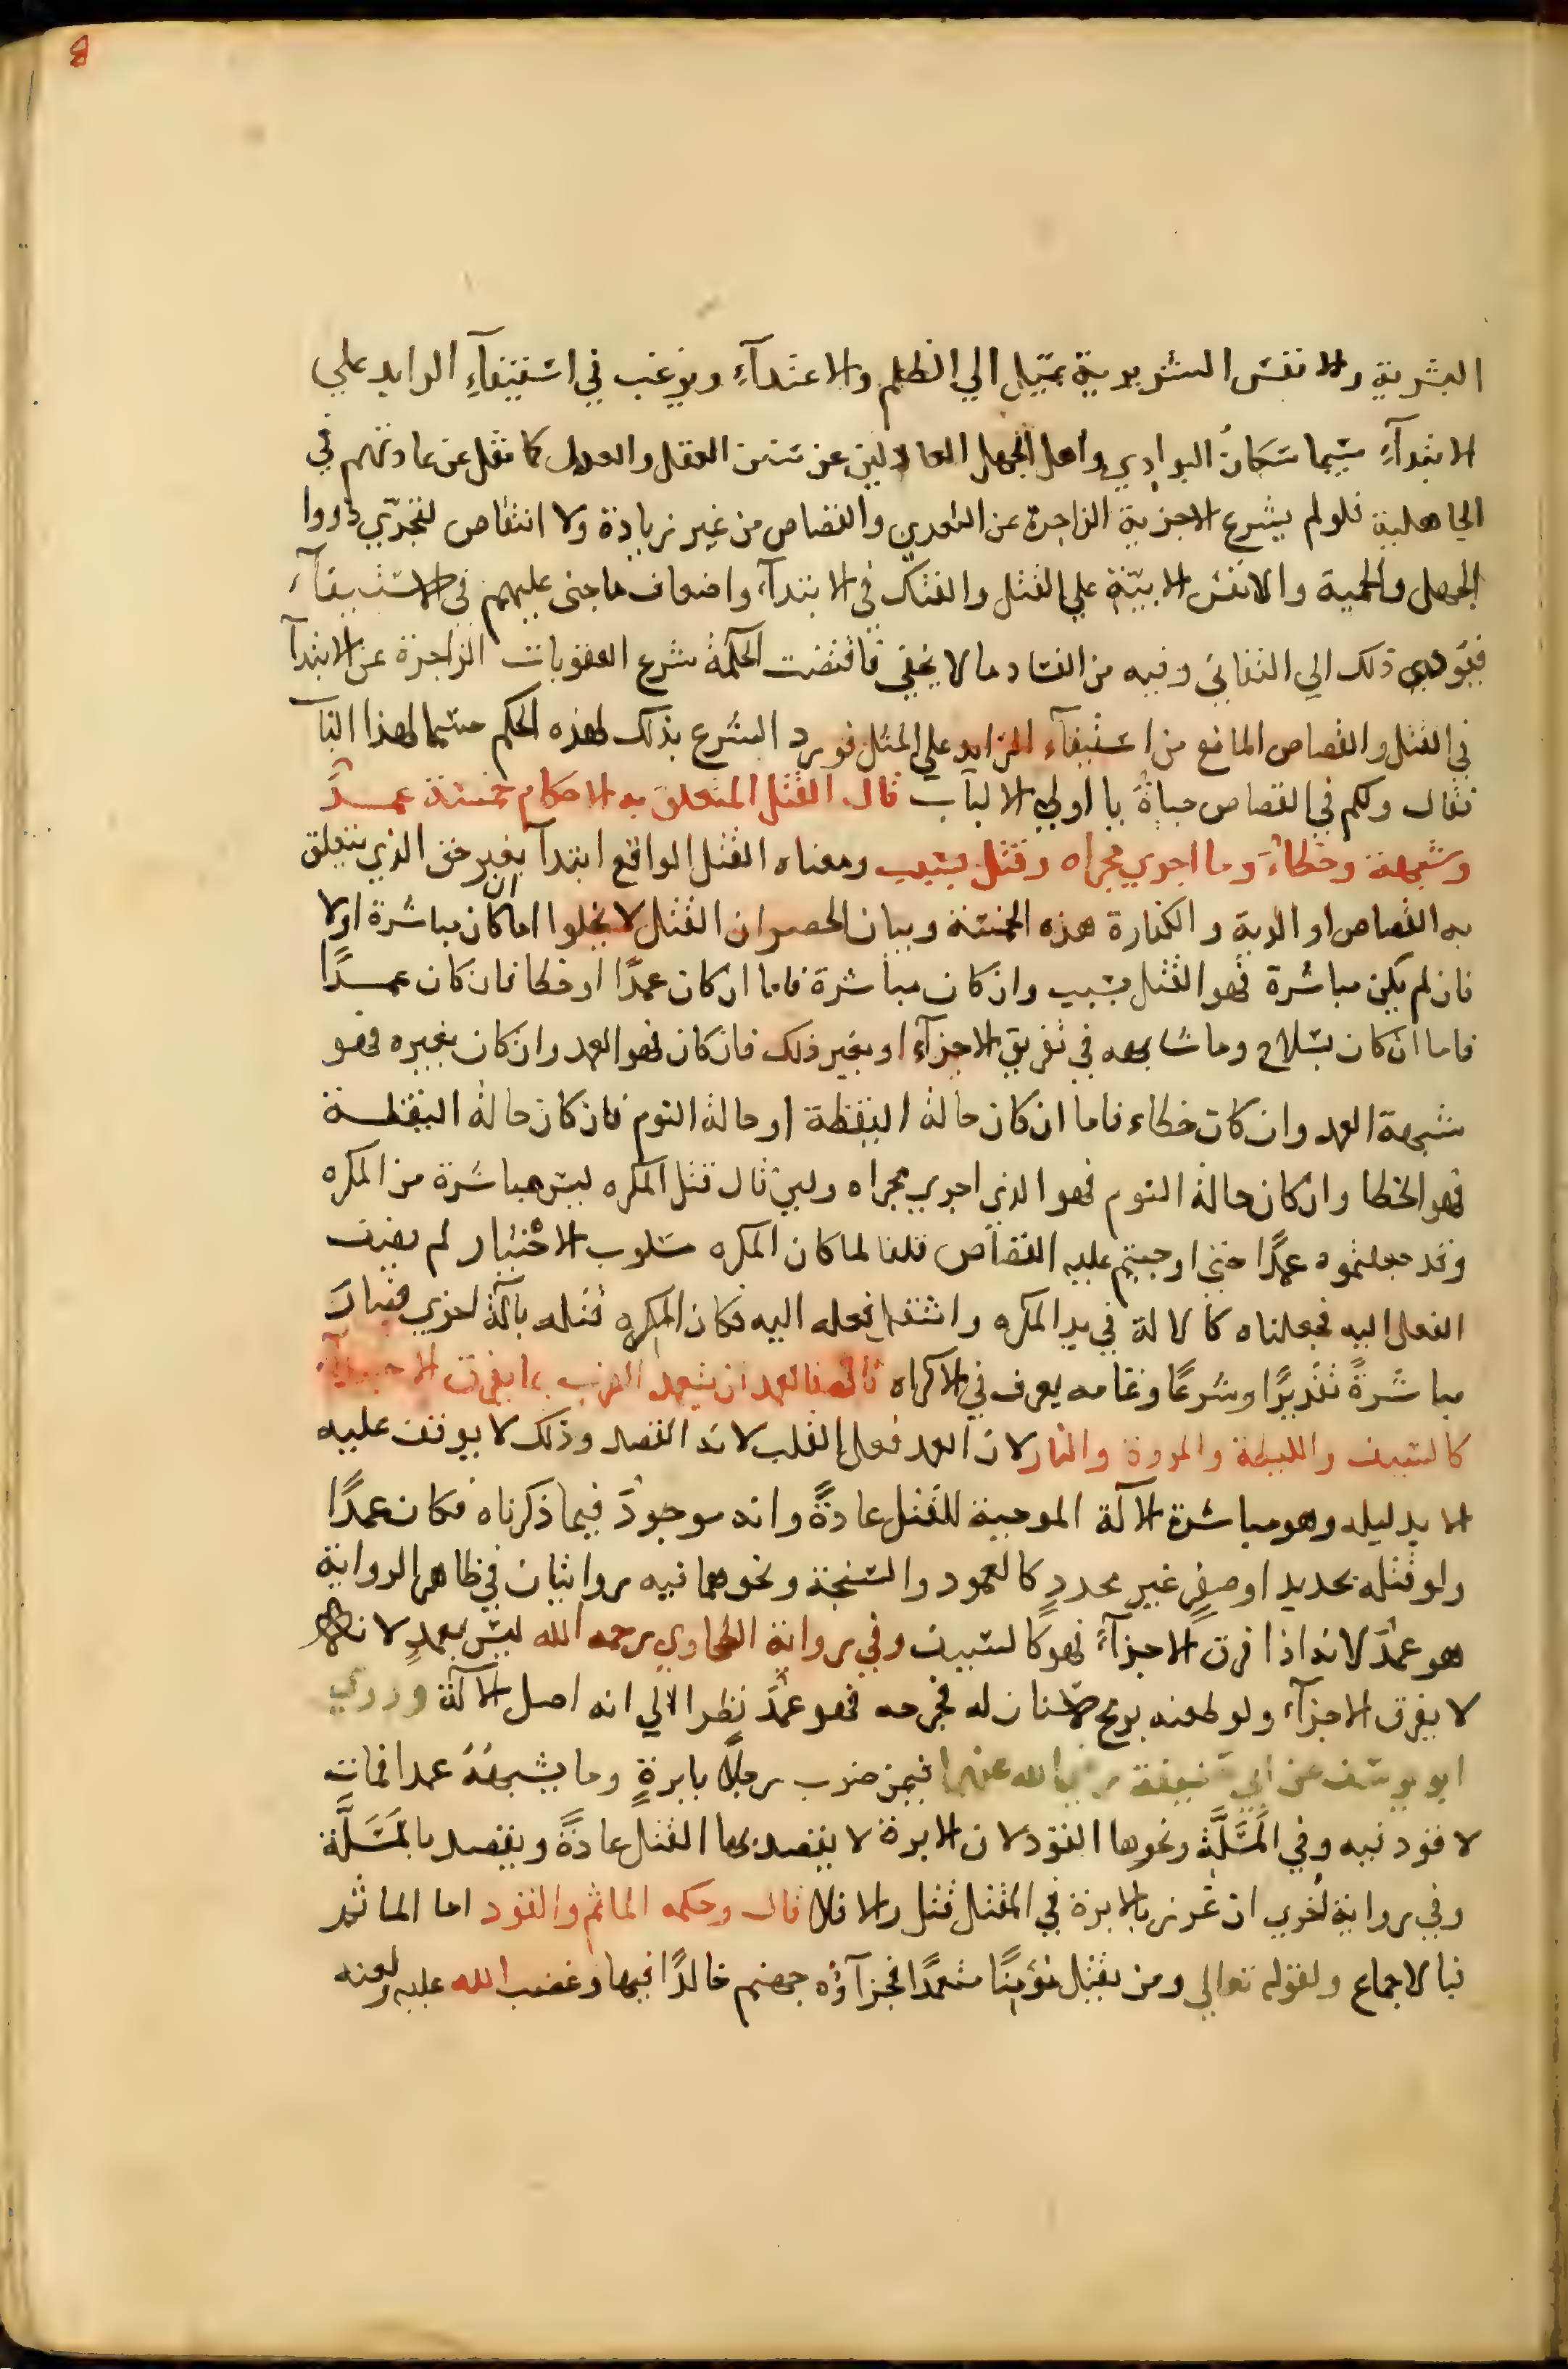 8
البشرية والانفس الشريرية تميل الي الظلم والاعتدآءِ ويرغب في استيفآءِ الزايد علي
الابتدآءِ سيما سكانُ البوادي واهل الجهل العادلين عن سنن العقل والعدل كما نقل عن عادتهم في
الجاهلية فلو لم يشرع الاجزية الزاجرة عن التعدي والقصاص من غير زيادة ولا انتقاص لتجرّي ذووا
الجهل والحمية والانفس الابيّة علي القتل والفتك في الابتدآء واضعاف ما جني عليهم في الاستيفآء
فيؤدي ذلك الي التفاني وفيه من الفساد ما لا يخفي فاقتضت الحكمةُ شرع العقوبات الزاجرة عن الابتدآ
في القتل والقصاص المانع من استيفآء الزايد علي المثل فورد الشرع بذلك لهذه الحكم حسما لهذا البآ
فقال ولكم في القصاص حياةٌ يا اولي الالباب قال القتل المتعلق به الاحكام خمسة عمـــدٌ
وشبهة وخطاءٌ وما اجري مجراه وقتل بسبب ومعناه القتل الواقع ابتدآ بغير حق الذي يتعلق
به القصاص او الدية والكفارة هذه الخمسة وبيان الحصر ان القتل لا يخلوا اما ان كان مباشرة اولا
فان لم يكن مباشرة فهو القتل بسبب وان كان مباشرة فاما ان كان عمدًا او خطا فان كان عمـــدًا
فاما ان كان بسلاح وما شابهه في تفريق الاجزآء او بغير ذلك فان كان فهو العمد وان كان بغيره فهو
شبهة العمد وان كان خطاء فاما ان كان حالة اليقظة او حالة النوم فان كان حالة اليقظـــة
فهو الخطا وان كان حالة النوم فهو الذي اجري مجراه ولين قال قتل المكره ليس مباشرة من المكره
وقد جعلتموه عمدًا حتي اوجبتم عليه القصاص قلنا لما كان المكره مسلوب الاختيار لم يضف
الفعل اليه فجعلناه كالالة في يد المكره وانتقل فعله اليه فكان المكره قتله بآلة اخري فصار
مباشرةً تقديرًا وشرعًا وتمامه يعرف في الاكراه قال فالعمد ان يتعمد الضرب بما يفرق الاجزآء
كالسيف والليطة والمروة والنار لان العمد فعل القلب لانه القصد وذلك لا يوقف عليه
الا بدليله وهو مباشرة الآلة الموجبة للقتل عادةً وانه موجودٌ فيما ذكرناه فكان عمدًا
ولو قتله بحديد او صفرٍ غير محددٍ كالعمود والسنجة ونحوهما فيه روايتان في ظاهر الرواية
هو عمدٌ لانه اذا فرق الاجزآءَ فهو كالسيف وفي رواية الطحاوي رحمه الله ليس بعمدٍ لانه
لا يفرق الاجزآء ولو طعنه برمح لا سنان له فجرحه فهو عمدٌ نظرا الي انه اصل الآلة وروي
ابو يوسف عن ابي حنيفة رضي الله عنهما فيمن ضرب رجلًا بابرةٍ وما يشبههُ عمدا فمات
لا قود فيه وفي المَسَلَّة ونحوها القود لان الابرة لا يقصد بها القتل عادةً ويقصد بالمَسَلَّة
وفي رواية اُخري ان غرز بالابرة في المقتل قتل والا فلا قال وحكمه الماثم والقود اما الماثم
فبالاجماع ولقوله تعالي ومن يقتل مؤمنًا متعمدًا فجزآؤه جهنم خالدًا فيها وغضب الله عليه ولعنه